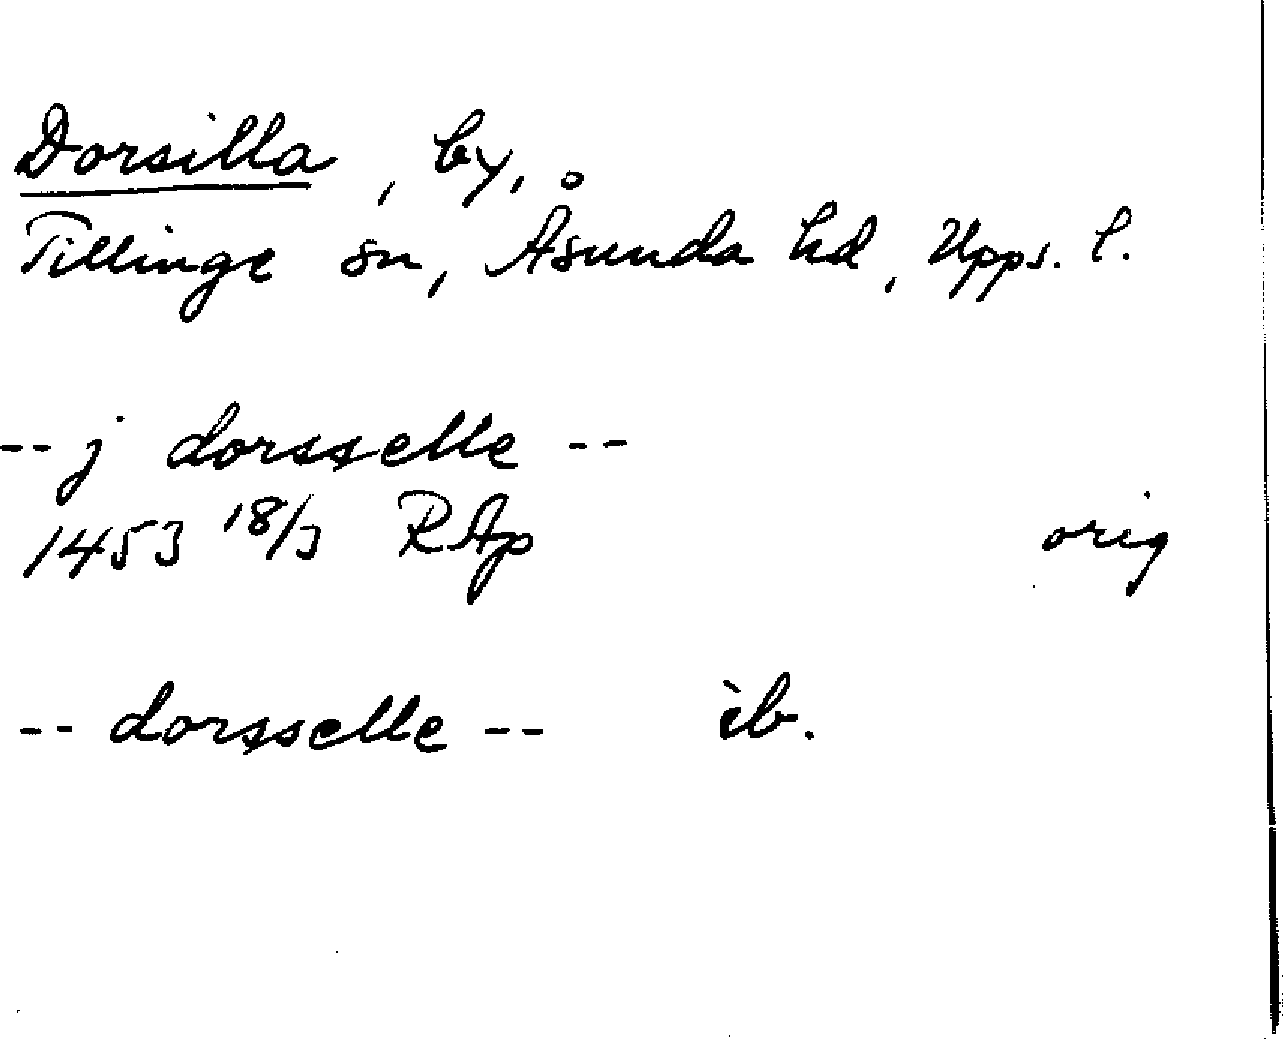 Dorsilla, by,
Tillinge sn, Åsunda hd, Upps. l.
-- j dorsselle --
1453 18/3 RAp orig
-- dorsselle -- ib.